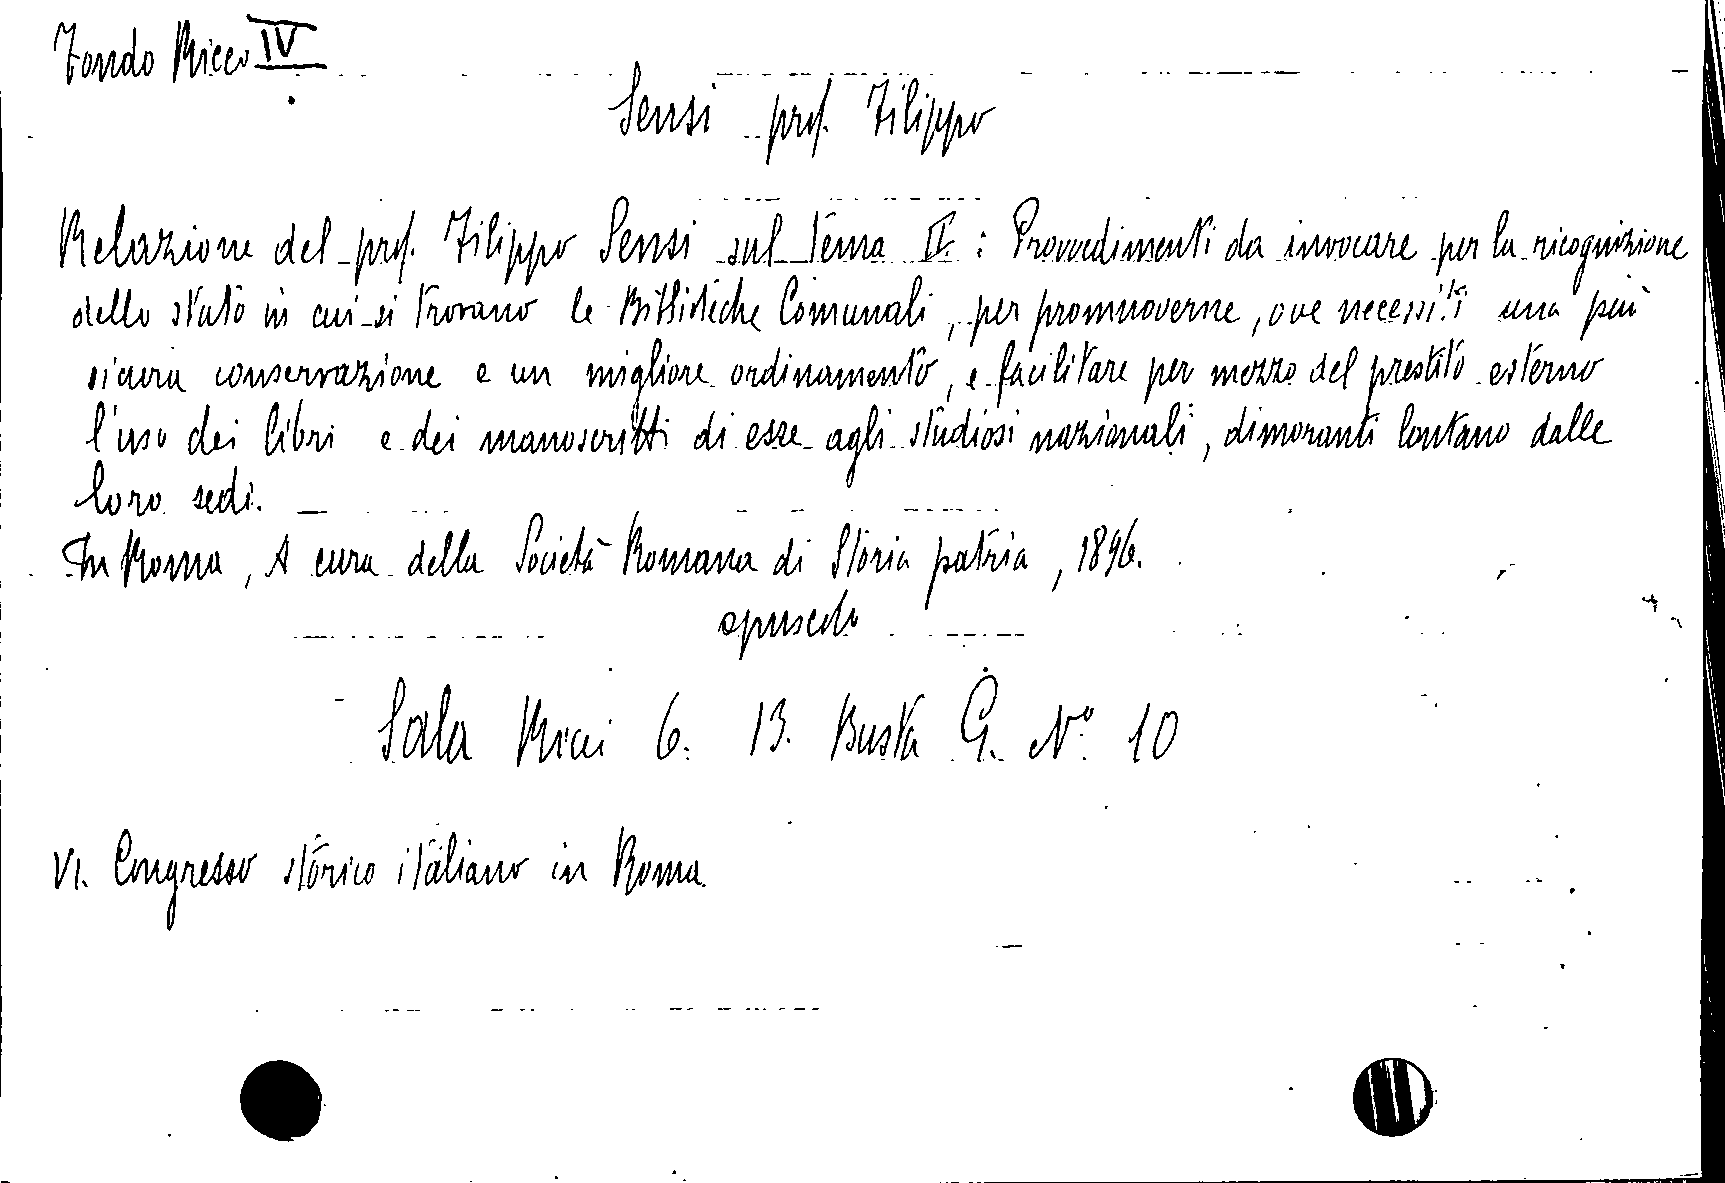 Fondo Ricci IV
Sensi prof. Filippo
Relazione del prof. Filippo Sensi sul Tema II. : Provvedimenti da invocare per la ricognizione
dello stato in cui si trovano le Biblioteche Comunali, per promuoverne, ove necessiti una più
sicura conservazione e un migliore ordinamento, e facilitare per mezzo del prestito esterno
l'uso dei libri e dei manoscritti di esse agli studiosi nazionali, dimoranti lontano dalle
loro sedi. —
In Roma, A cura della Società Romana di Storia patria, 1896.
opuscolo
Sala Ricci 6. 13. Busta G. N° 10
VI. Congresso storico italiano in Roma.